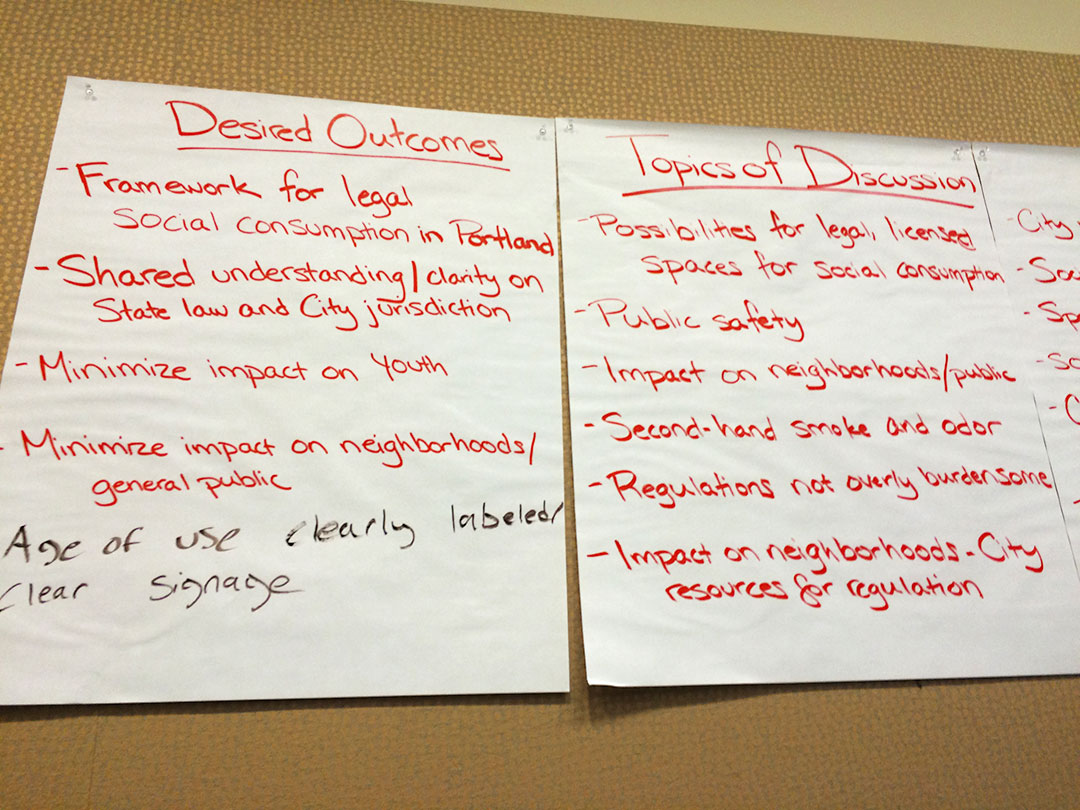 Desired Outcomes
- Framework for legal
social consumption in Portland
- Shared understanding/clarity on
State law and City jurisdiction
- Minimize impact on Youth
- Minimize impact on neighborhoods/
general public
Age of use clearly labeled/
clear signage
Topics of Discussion
- Possibilities for legal, licensed
spaces for social consumption
- Public safety
- Impact on neighborhoods/public
- Second-hand smoke and odor
- Regulations not overly burdensome
- Impact on neighborhoods - City
resources for regulation
- City